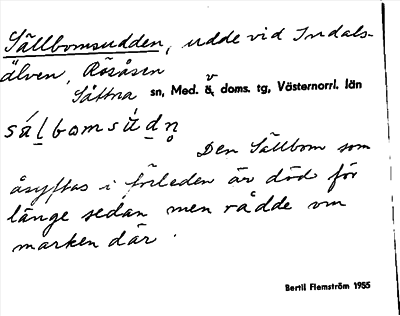 Sällbomsudden, udde vid Indals-
älven, Rösåsen
Sättna sn, Med. ö. v doms. tg, Västernorrl. län
sálbomsùdn̥
Den Sällbom som
åsyftas i förleden är död för
länge sedan men rådde om
marken där.
Bertil Flemström 1955